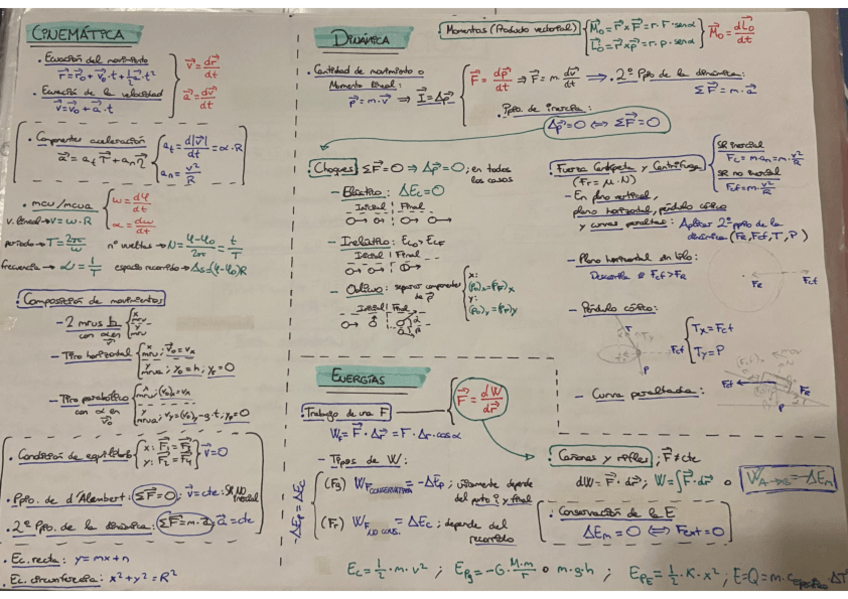 CINEMÁTICA
· Ecuación del movimiento
r⃗ = r⃗₀ + v⃗₀·t + ½·a⃗·t²
· Ecuación de la velocidad
v⃗ = v⃗₀ + a⃗·t
v⃗ = dr⃗/dt
a⃗ = dv⃗/dt
· Componentes aceleración
a⃗ = aₜ τ⃗ + aₙ η⃗
aₜ = d|v⃗|/dt = α·R
aₙ = v²/R
· mcu/mcua
ω = dφ/dt
α = dω/dt
v. lineal → v = ω·R
período → T = 2π/ω
nº vueltas → N = φ-φ₀/2π = t/T
frecuencia → ν = 1/T
espacio recorrido → Δs = (φ-φ₀)R
· Composición de movimientos
- 2 mrus
con α en
x
mru
y
mru
- Tiro horizontal
x
mru; v⃗₀=vₓ
y
mrua; y₀=h; vᵧ₀=0
- Tiro parabólico
con α en v⃗₀
x
mru; (v₀)ₓ=vₓ
y
mrua; vᵧ=(v₀)ᵧ-g·t; y₀=0
· Condición de equilibrio
x: F⃗₁ = F⃗₃
y: F⃗₂ = F⃗₄
v⃗=0
· Ppio. de d'Alembert: ΣF⃗=0; v⃗=cte: SR NO inercial
· 2º Ppio. de la dinámica: ΣF⃗=m·a⃗; a⃗=cte
· Ec. recta: y=mx+n
· Ec. circunferencia: x²+y²=R²
DINÁMICA
Momentos (Producto vectorial)
M⃗₀ = r⃗×F⃗ = r·F·senα
L⃗₀ = r⃗×p⃗ = r·p·senα
M⃗₀ = dL⃗₀/dt
· Cantidad de movimiento o
Momento lineal:
p⃗ = m·v⃗ ⇒ I⃗ = Δp⃗
F⃗ = dp⃗/dt ⇒ F⃗ = m·dv⃗/dt ⟹ · 2º Ppio de la dinámica:
ΣF⃗ = m·a⃗
· Ppio. de inercia:
Δp⃗=0 ⟺ ΣF⃗=0
· Choques
ΣF⃗=0 ⇒ Δp⃗=0; en todos
los casos
- Elástico: ΔEc=0
Inicial Final
- Inelástico: Ec₀>EcF
Inicial Final
- Oblicuo: separar componentes
de p⃗
x:
(p₀)ₓ=(pF)ₓ
y:
(p₀)ᵧ=(pF)ᵧ
Inicial Final
· Fuerza Centrípeta y Centrífuga
(Fr = μ·N)
SR inercial
Fc = m·aₙ = m·v²/R
SR no inercial
Fcf = m·v²/R
- En plno vertical,
plno horizontal, péndulo cónico
y curvas peraltadas: Aplicar 2º ppio de la
dinámica (Fc, Fcf, T, P)
- Plano horizontal sin hilo:
Fcf > FR
FR
Fcf
- Péndulo cónico:
T
Ty
Fcf
P
Tx = Fcf
Ty = P
- Curva peraltada:
Fcf
FR
P
ENERGÍAS
· Trabajo de una F
F⃗ = dW/dr⃗
W_F = F⃗·Δr⃗ = F·Δr·cosα
- Tipos de W:
ΔEp = ΔEc
(Fg) W_F CONSERVATIVA = -ΔEp; únicamente depende
del pnto i y final
(Fr) W_F NO CONS. = ΔEc; depende del
recorrido
· Cañones y rifles; F⃗≠cte
dW = F⃗·dr⃗; W = ∫F⃗·dr⃗ o
· Conservación de la E
ΔEm=0 ⟺ Fext=0
Ec = ½·m·v²; Epg = -G·M·m/r o m·g·h; EpE = ½·K·x²; E=Q=m·c específico·ΔT